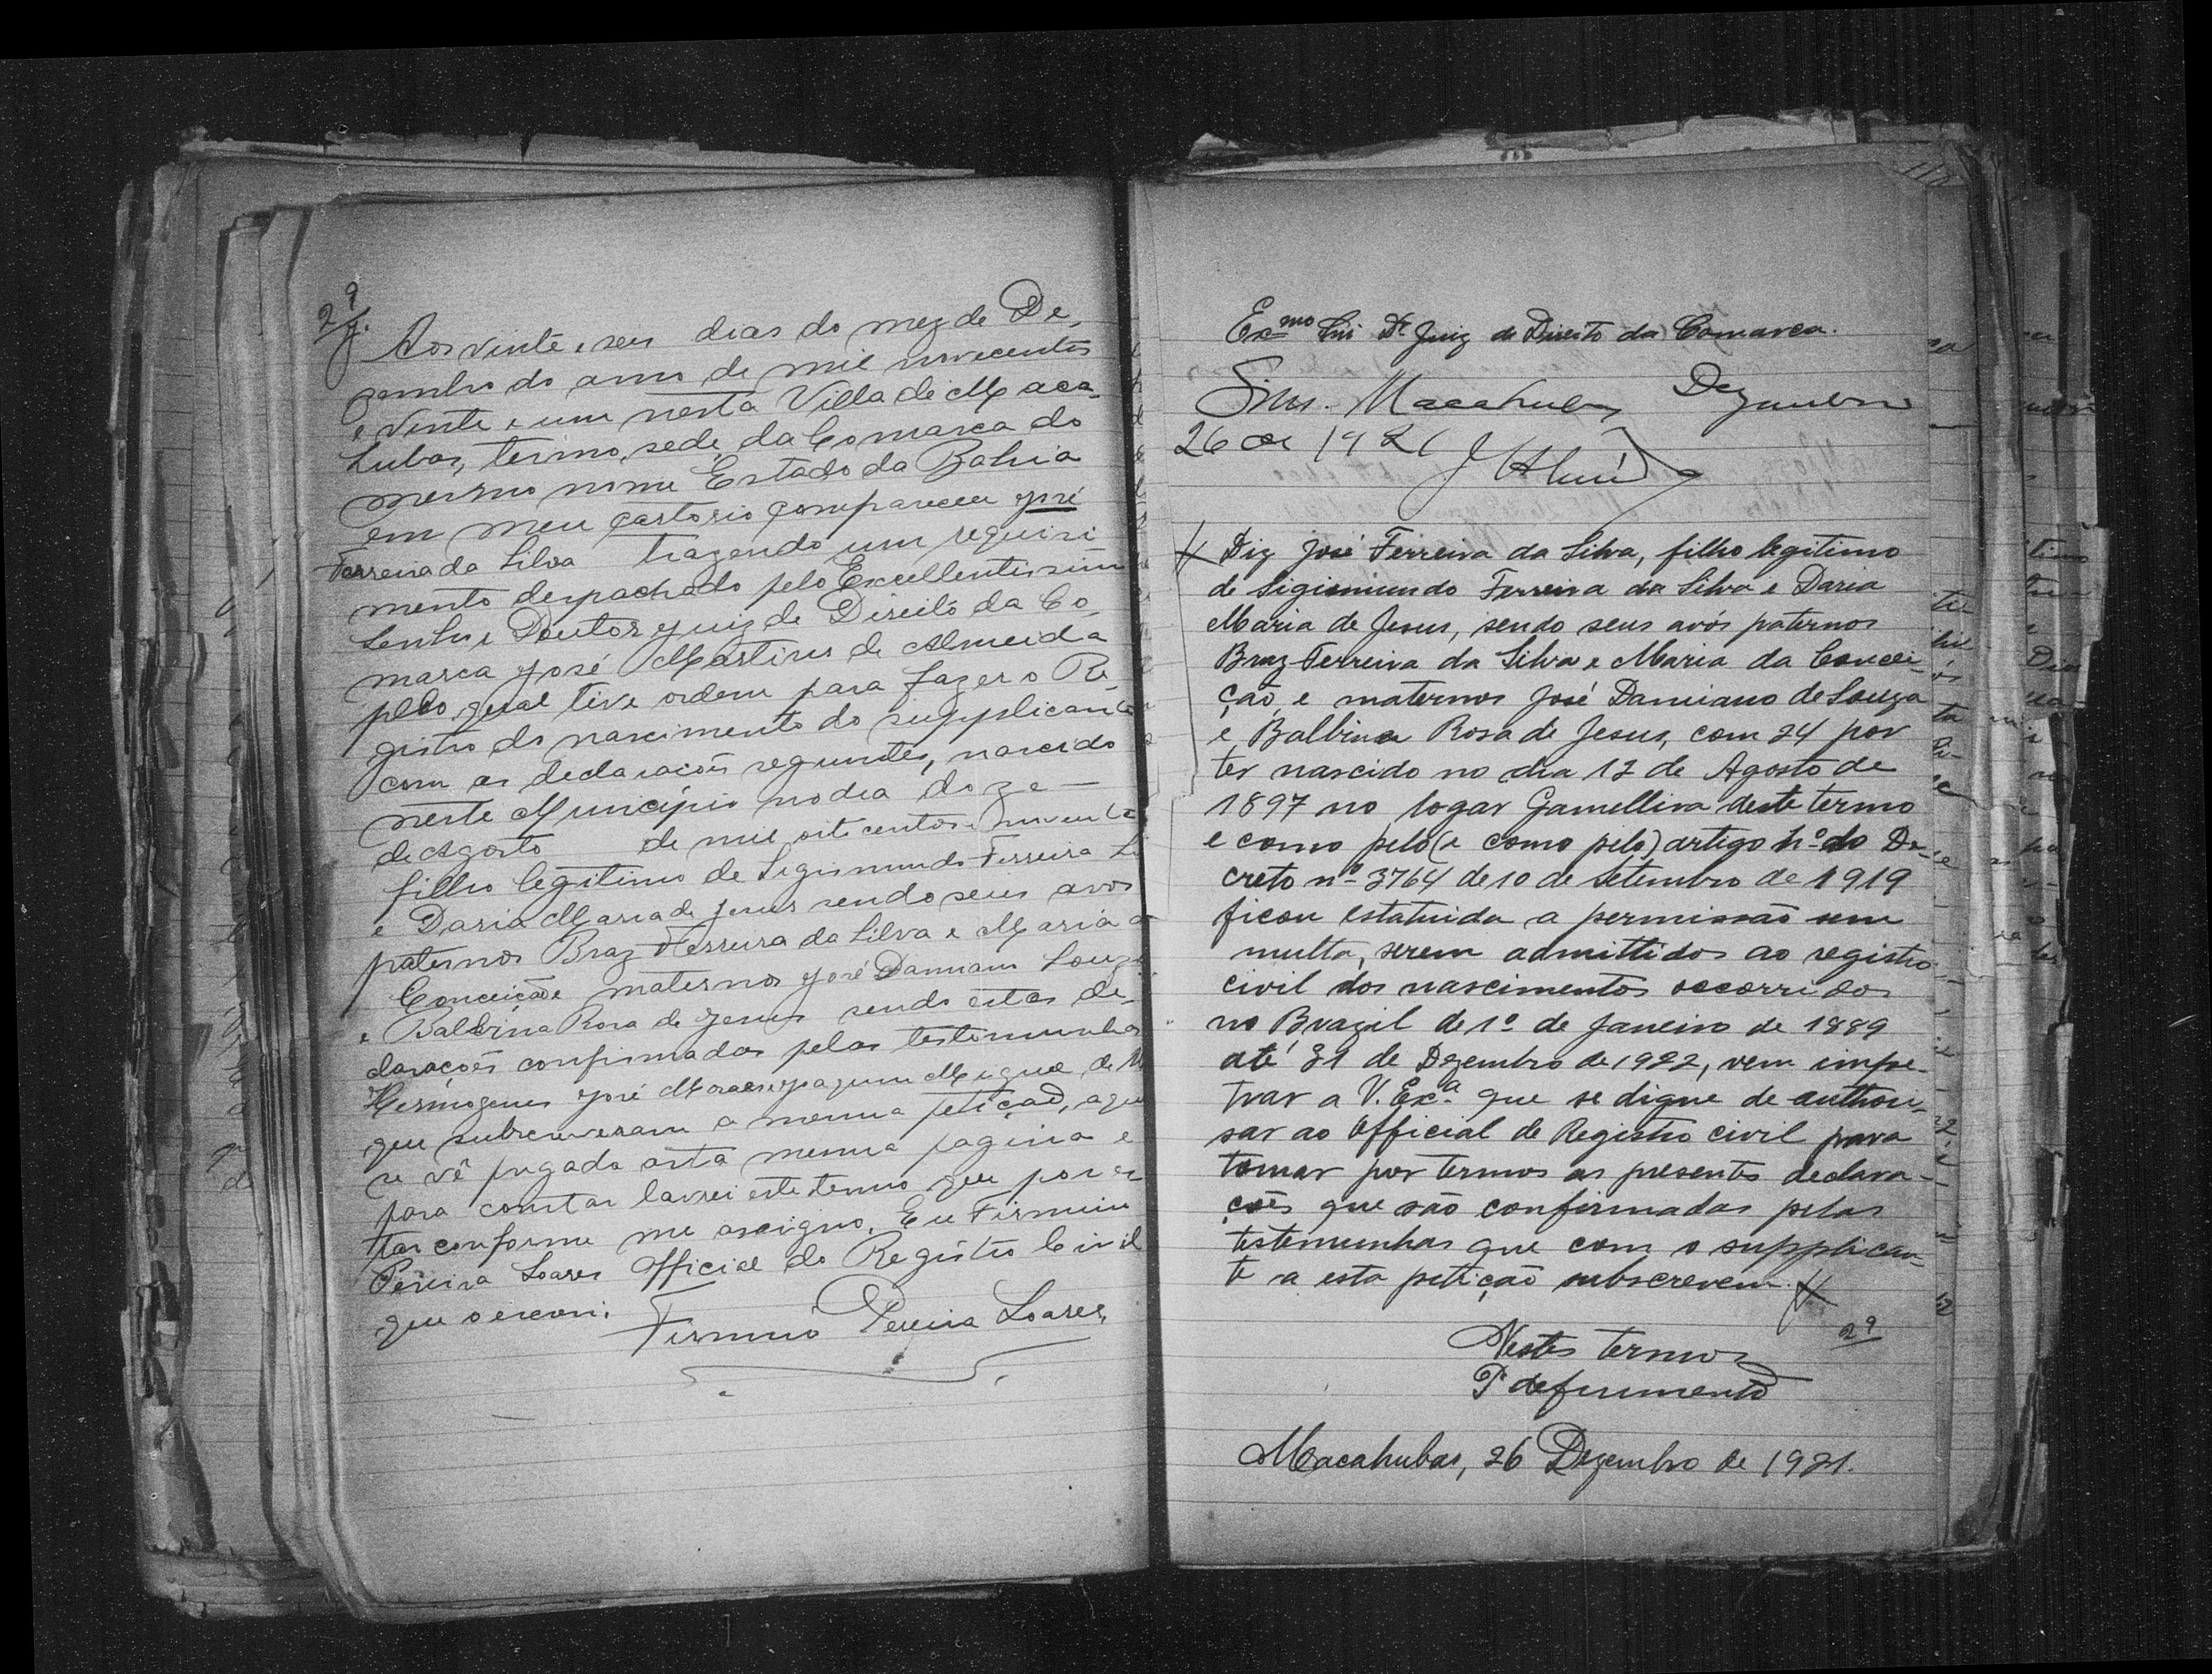 29
Aos vinte e seis dias do mez de De-
zembro do anno de mil novecentos
e vinte e um nesta Villa de Maca-
hubas, termo, sede, da Comarca do
mesmo nome Estado da Bahia
em meu cartorio compareceu José
Ferreira da Silva trazendo um requiri
mento despachado pelo Excellentissimo
Senhor Doutor Juiz de Direito da Co-
marca José Martins de Almeida
pelo qual tive ordem para fazer o Re-
gistro do nascimento do supplicante
com as declarações seguintes, nascido
neste Municipio no dia doze
de Agosto de mil oito centos e noventa
filho legitimo de Sigismundo Ferreira
e Daria Maria de Jesus sendo seus avos
paternos Braz Ferreira da Silva e Maria
Conceição e maternos José Damiano Souza
e Balbina Rosa de Jesus sendo estas de-
clarações confirmadas pelas testemunhas
Hermogenes José Moraes e Joaquim Miguel de
que subscreveram a mesma petição, a que
se vê pegada a esta mesma pagina e
para constar lavrei este termo que por es
tar conforme me assigno. Eu Firmino
Pereira Soares Official do Registro Civil
que o escrevi.
Firmino Pereira Soares
110
Exmo Snr Dr Juiz de Direito da Comarca.
Sim. Macahubas Dezembro
26 de 1921
J Almeida
Diz José Ferreira da Silva, filho legitimo
de Sigismundo Ferreira da Silva e Daria
Maria de Jesus, sendo seus avós paternos
Braz Ferreira da Silva e Maria da Concei-
ção, e maternos José Damiano de Souza
e Balbina Rosa de Jesus, com 24 por
ter nascido no dia 12 de Agosto de
1897 no logar Gamelleira deste termo
e como pelo (e como pelo) artigo nº do De-
creto nº 3764 de 10 de Setembro de 1919
ficou estatuida a permissão sem
multa, serem admittidos ao registro
civil dos nascimentos occorridos
no Brazil de 1º de Janeiro de 1889
até 31 de Dezembro de 1922, vem impe-
trar a V. Exª que se digne de authori-
sar ao Official de Registro civil para
tomar por termos as presentes declara-
ções que são confirmadas pelas
testemunhas que com o supplican-
te a esta petição subscrevem.
29
Nestes termos
P. deferimento
Macahubas, 26 Dezembro de 1921.